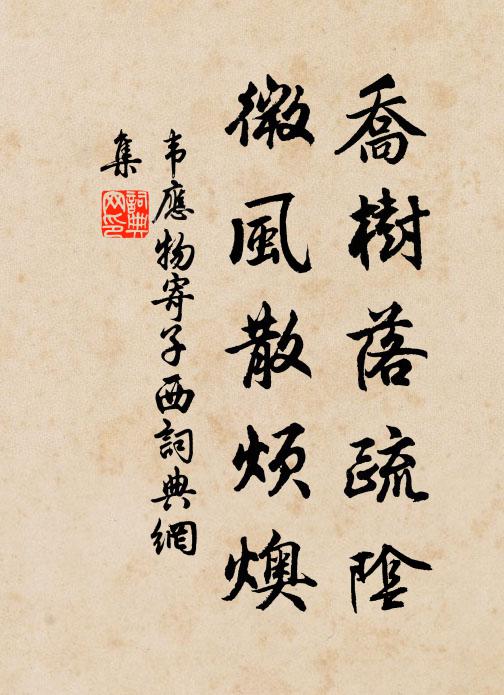 喬樹落疏陰
微風散煩燠
韦應物寄子西詞典網
集
詞典網印